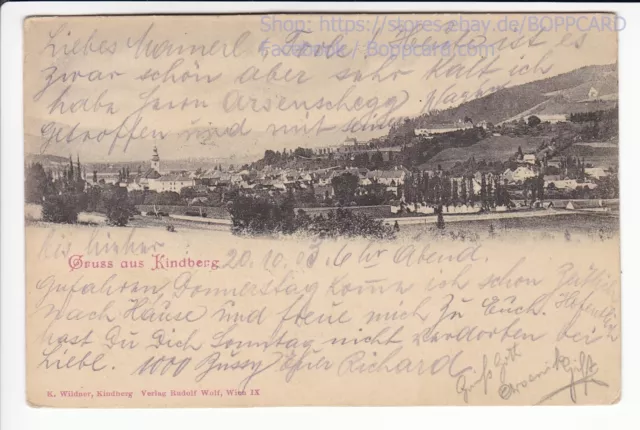 Shop: https://stores.ebay.de/BOPPCARD
Facebook / Boppcard.com
Liebes Mamerl & Irene! Heute ist es
zwar schön aber sehr kalt ich
habe Herrn Arsenschegg
getroffen und mit seinem Wagen
bis hieher
Gruss aus Kindberg
20.10.03 6 Uhr Abend.
gefahren Donnerstag komme ich schon Zeitlich
nach Hause und freue mich zu Euch. Hoffentlich
hast Du Dich Sonntag nicht verdorben bei
Liebl. 1000 Bussy Euer Richard
Gruß Gott
K. Wildner, Kindberg Verlag Rudolf Wulf, Wien IX